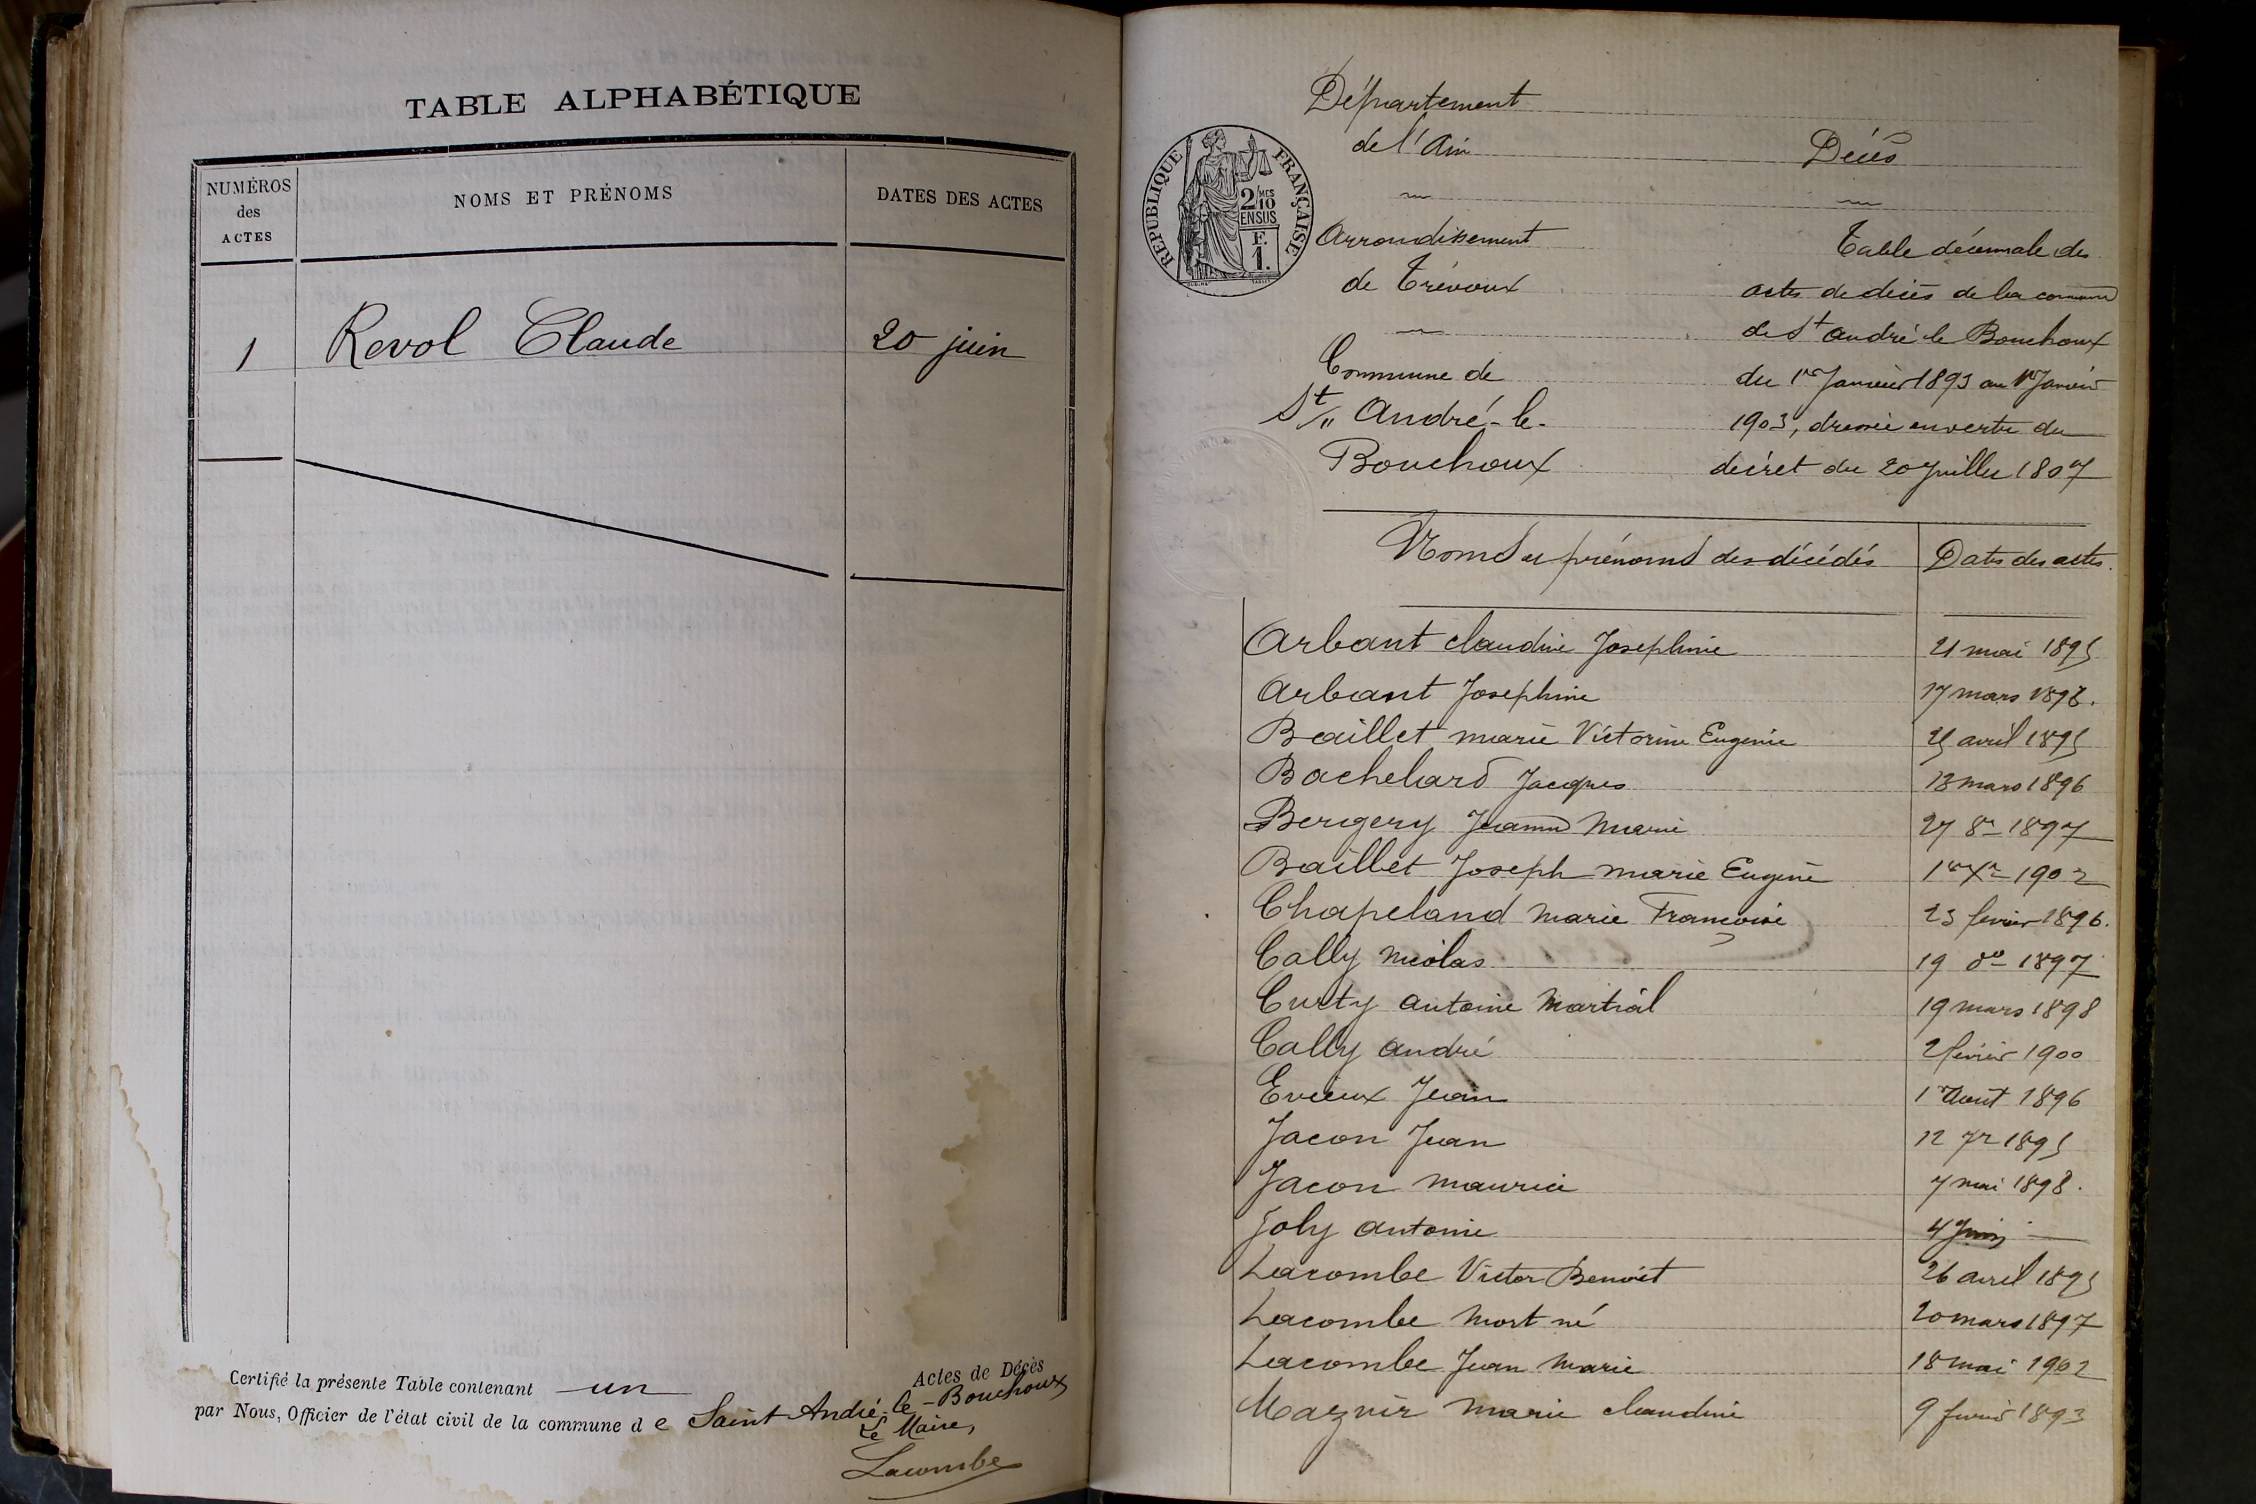 TABLE ALPHABÉTIQUE
NUMÉROS
des
ACTES
NOMS ET PRÉNOMS
DATES DES ACTES
1 Revol Claude 20 juin
Certifié la présente Table contenant un Actes de Décès
par Nous, Officier de l'état civil de la commune de Saint André-le-Bouchoux
Le Maire,
Lacombe
Département
de l'Ain
RÉPUBLIQUE FRANÇAISE
2/10 MES
EN SUS
F.
1.
Arrondissement
de Trévoux
Commune de
St André-le-
Bouchoux
Décès
Table décennale des
actes de décès de la commune
de St André le Bouchoux
du 1er Janvier 1893 au 1er Janvier
1903, dressée en vertu du
décret du 20 Juillet 1807
Noms et prénoms des décédés Dates des actes.
Arbant Claudine Josephine 21 mai 1895
Arbant Josephine 17 mars 1898.
Baillet Marie Victorine Eugenie 25 avril 1895
Bachelard Jacques 13 mars 1896
Bergery Jeanne Marie 27 8re 1897
Baillet Joseph Marie Eugène 1er Xre 1902
Chapeland Marie Françoise 23 fevrier 1896.
Cally Nicolas 19 1897
Curty Antoine Martial 19 mars 1898
Cally André 2 février 1900
Evieux Jean 1er Aout 1896
Jacon Jean 12 7re 1895
Jacon Maurice 7 mai 1898.
Joly Antoine 4 Juin —
Lacombe Victor Benoit 26 avril 1895
Lacombe Mort né 20 mars 1897
Lacombe Jean Marie 18 mai 1902
Mazuir Marie Claudine 9 1893